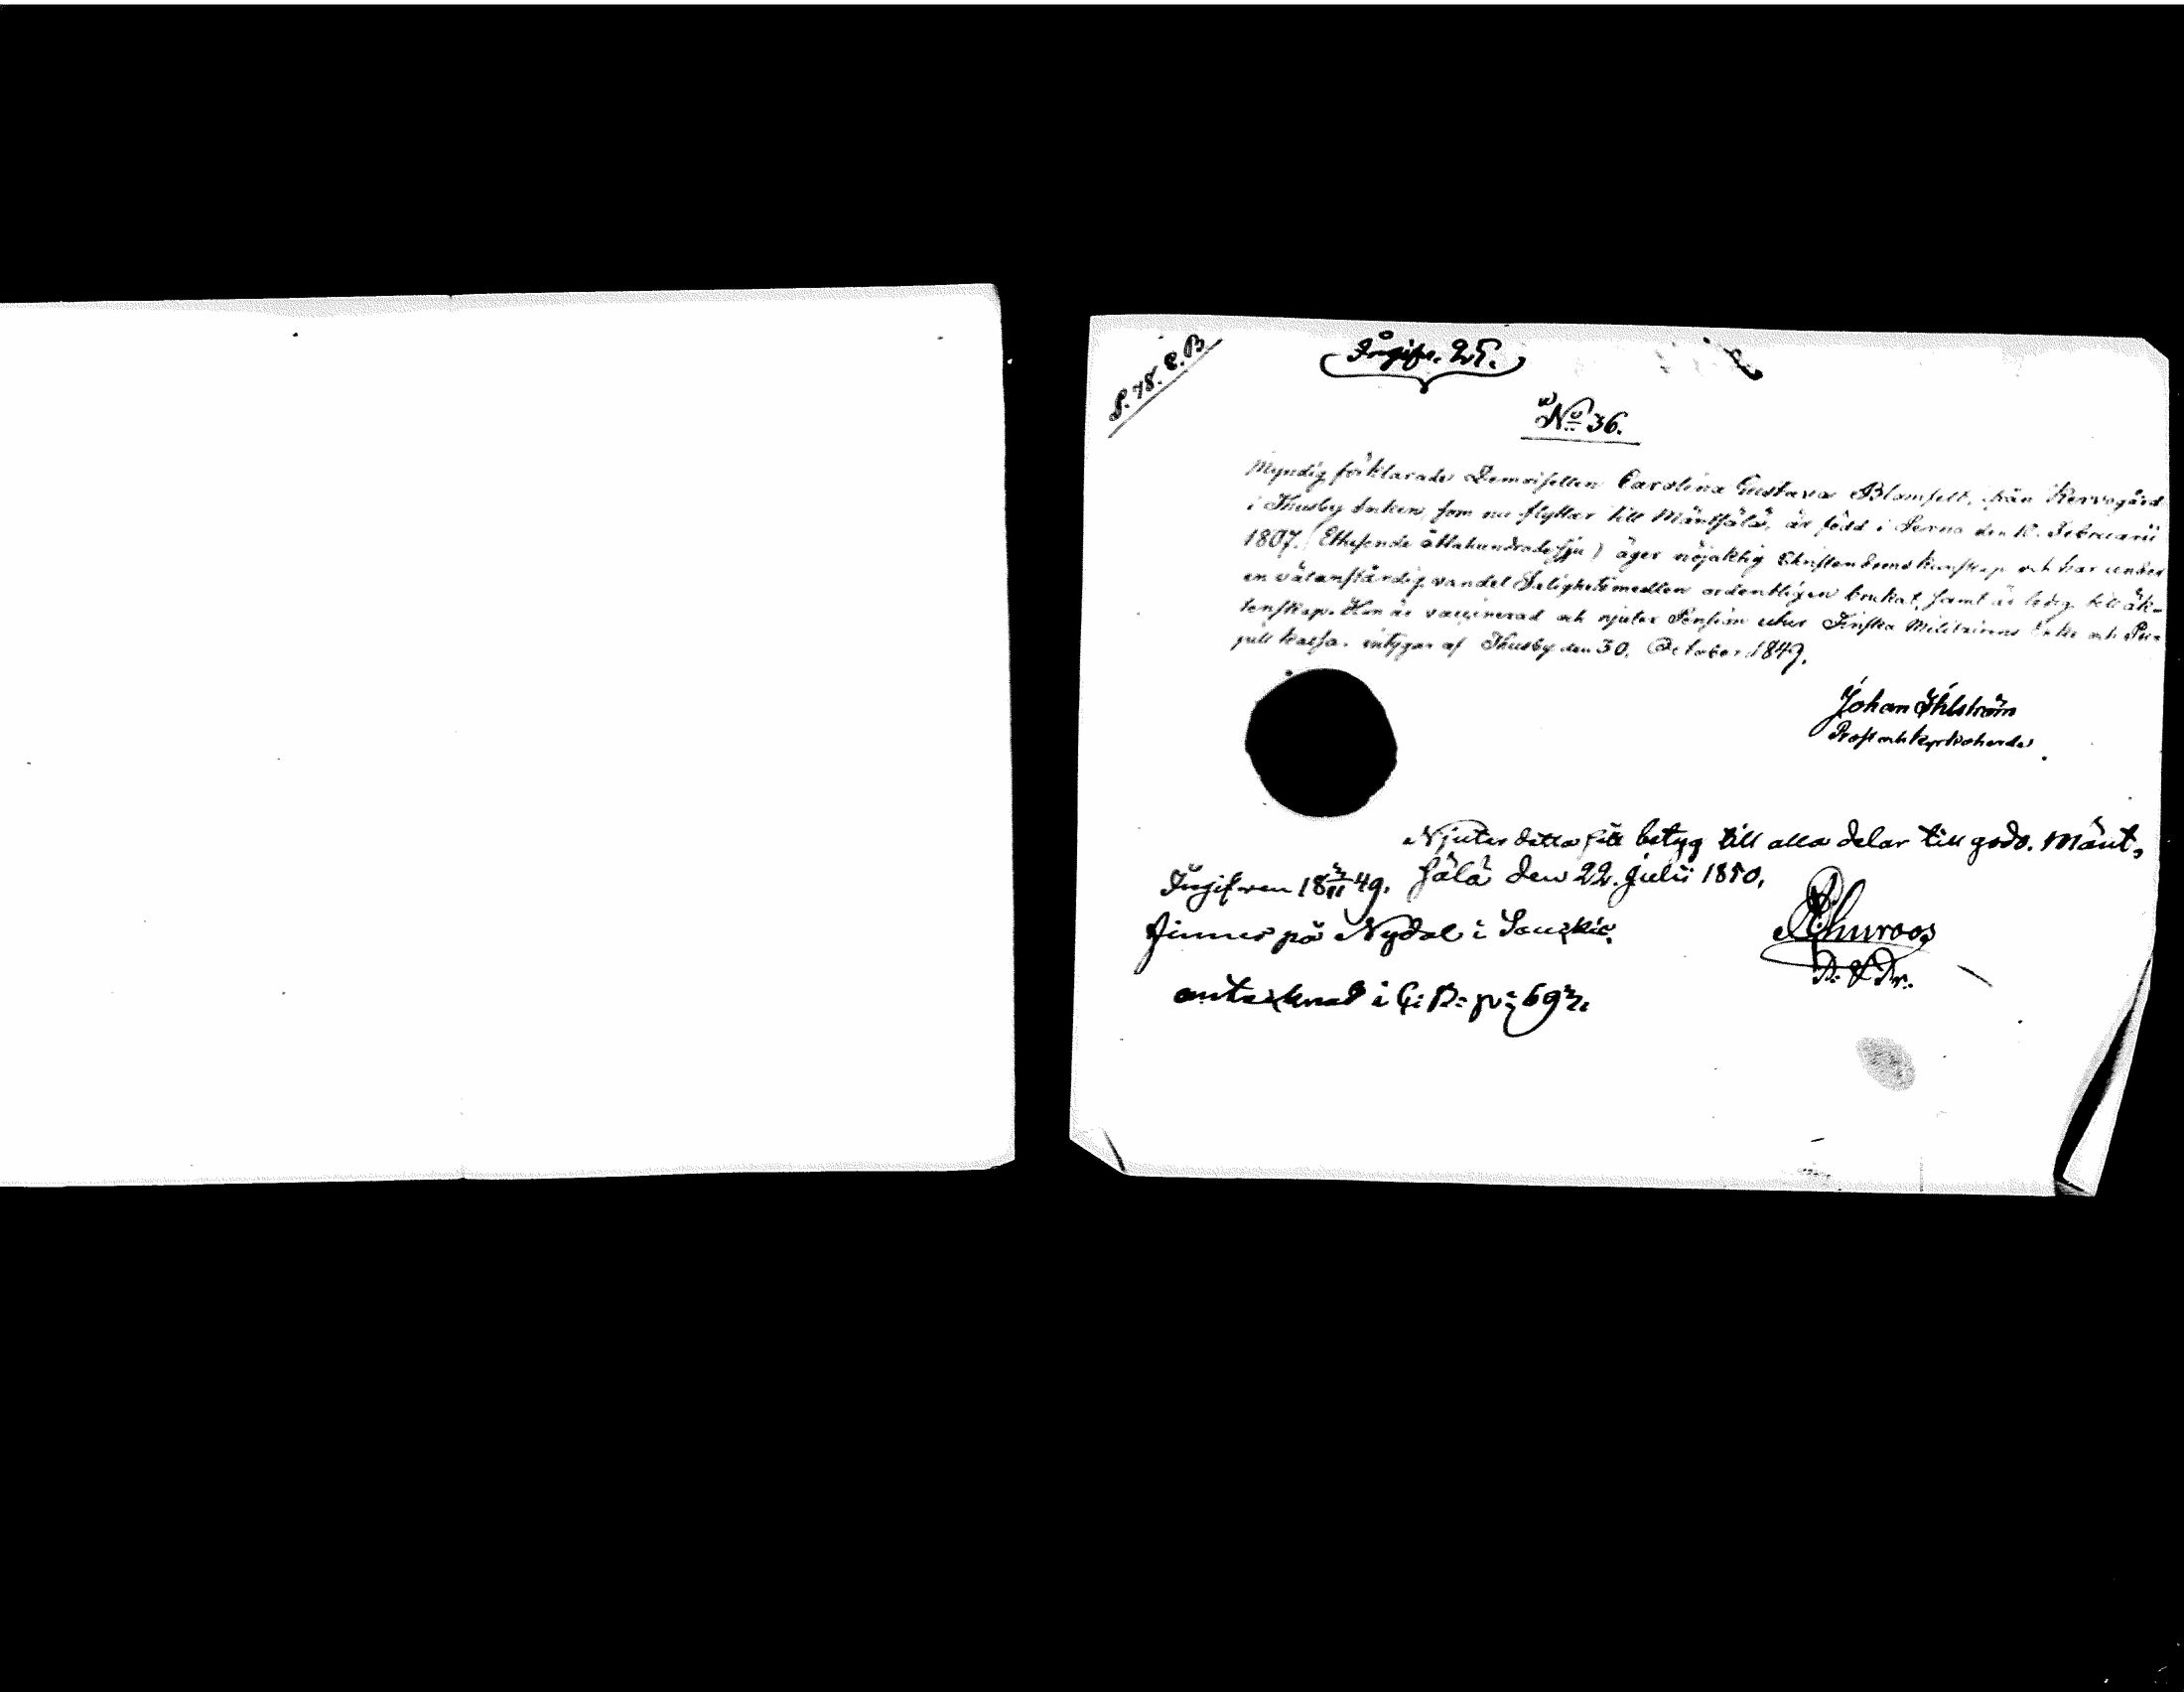 S. 78. C.B
Ingifv. 25.
No 36.
Myndig förklarade Demoisellen Carolina Gustava Blomfelt, från Kervogård
i Thusby socken, som nu flyttar till Mäntsälä, är född i Perno den 10. Februarii
1807. (Ettusende åttahundradesju) äger nöjaktig Christendomskunskap och har under
en välanständig vandel Salighetsmedlen ordentligen brukat, samt är ledig till äk-
tenskap. Hon är vaccinerad och njuter Pension utur Finska Militairens Enke och Pu-
pill kassa. intygar af Thusby den 30. October 1849.
Johan Åhlström
Prost och Kyrkoherde
Njuter detta sitt betyg till alla delar till godo. Mänt-
sälä den 22. Julii 1850.
Ingifven 18 3/11 49.
finnes på Nydal i
antecknad i C: B: p: 69